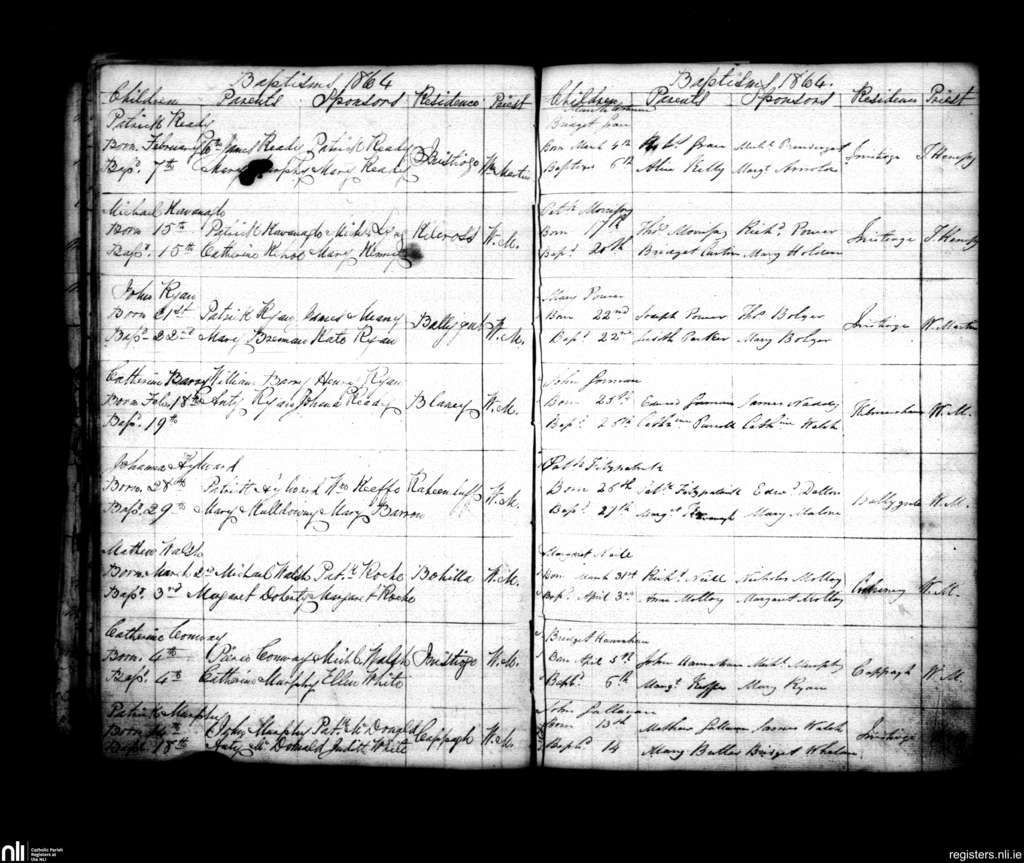 Baptisms 1864
Children Parents Sponsors Residence Priest
Patrick Ready
Born February 6th James Ready Patrick Ready Inistioge Wm Martin
Bapd. 7th Mary Murphy Mary Ready
Michael Kavanagh
Born 15th Patrick Kavanagh Michl Kilcross W.M.
Bapd. 15th Catherine Kehoe Mary Kenny
John Ryan
Born 21st Patrick Ryan James Meany Ballygub W.M.
Bapd. 22nd Mary Brennan Kate Ryan
Catherine Barry William Barry Henry Ryan
Born Feb. 18th Anty Ryan Johana Ready Blaney W.M.
Bapd. 19th
Johanna Aylward
Born 28th Patrick Aylward Wm Keeffe W.M.
Bapd. 29th Mary Muldowny Mary Barron
Mathew Walsh
Born March 2nd Michael Walsh Patk Roche Bohilla W.M.
Bapd. 3rd Margaret Doherty Margaret Roche
Catherine Conway
Born 4th Pierce Conway Michl Walsh Inistioge W.M.
Bapd. 4th Catherine Murphy Ellen White
Patrick Murphy
Born 14th John Murphy Patk McDonald Cappagh W.M.
Bapd. 18th Anty McDonald Judith White
Baptisms 1864.
Children Parents Sponsors Residence Priest
Bridget Grace
Born March 4th Robt Grace Michl Prendergast Inistioge T Hennessy
Baptized 6th Alice Kelly Margt
Patk Morrissy
Born 17th Thos Morrissy Richd Power Inistioge T Hennessy
Bapd. 20th Bridget Curtin Mary Holden
Mary Power
Born 22nd Joseph Power Thos Bolger Inistioge W. Martin
Bapd. 22nd Judith Parker Mary Bolger
John Gorman
Born 25th Edwd Gorman James W.M.
Bapd. 28th Cathne Purcell Cathne Walsh
Patk Fitzpatrick
Born 26th Patk Fitzpatrick Edwd Dalton Ballygub W.M.
Bapd. 27th Margt Mary Malone
Margaret Neill
Born March 31st Richd Neill Nicholas Molloy W.M.
Bapd. April 3rd Anne Molloy Margaret Molloy
Bridget Hanrahan
Born April 5th John Hanrahan Michl Murphy Cappagh W.M.
Baptd. 6th Margt Mary Ryan
John Sullivan
Born 13th Mathew Sullivan James Walsh Inistioge
Baptd 14 Mary Butler Bridget Whelan
nli Catholic Parish
Registers at
the NLI
registers.nli.ie